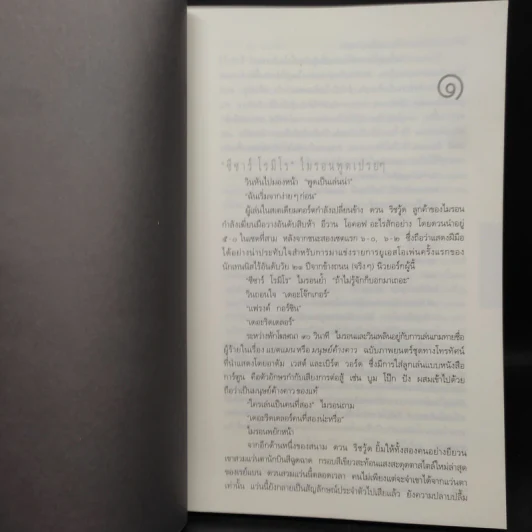 ๑
"ซีซาร์ โรมิโร" ไมรอนพูดเปรยๆ
วินหันไปมองหน้า "พูดเป็นเล่นน่า"
"ฉันเริ่มจากง่ายๆ ก่อน"
ผู้เล่นในสเตเดียมคอร์ตกำลังเปลี่ยนข้าง ดวน ริชวู้ด ลูกค้าของไมรอน
กำลังเพี้ยนมือวางอันดับสิบห้า อีวาน โอคอฟอะไรสักอย่าง โดยดวนนำอยู่
๕-๐ ในเซตที่สาม หลังจากชนะสองเซตแรก ๖-๐, ๖-๒ ซึ่งถือว่าแสดงฝีมือ
ได้อย่างน่าประทับใจสำหรับการมาแข่งรายการยูเอสโอเพ่นครั้งแรกของ
นักเทนนิสไร้อันดับวัย ๒๑ ปีจากข้างถนน (จริงๆ) นิวยอร์กผู้นี้
"ซีซาร์ โรมิโร" ไมรอนย้ำ "ถ้าไม่รู้จักก็บอกมาเถอะ"
วินถอนใจ "เดอะโจ๊กเกอร์"
"แฟรงค์ กอร์ชิน"
"เดอะริดเดลอร์"
ระหว่างพักโฆษณา ๙๐ วินาที ไมรอนและวินเพลินอยู่กับการเล่นเกมทายชื่อ
ผู้ร้ายในเรื่อง แบตแมน หรือ มนุษย์ค้างคาว ฉบับภาพยนตร์ชุดทางโทรทัศน์
ที่นำแสดงโดยอาดัม เวสต์ และเบิร์ต วอร์ด ซึ่งมีการใส่ลูกเล่นแบบหนังสือ
การ์ตูน คือตัวอักษรกำกับเสียงการต่อสู้ เช่น บูม โป๊ก ปัง ผสมเข้าไปด้วย
ถือว่าเป็นมนุษย์ค้างคาวของแท้
"ใครเล่นเป็นคนที่สอง" ไมรอนถาม
"เดอะริดเดลอร์คนที่สองน่ะหรือ"
ไมรอนพยักหน้า
จากอีกด้านหนึ่งของสนาม ดวน ริชวู้ด ยิ้มให้ทั้งสองคนอย่างยียวน
เขาสวมแว่นตานักบินสีฉูดฉาด กรอบสีเขียวสะท้อนแสงสะดุดตาสไตล์ใหม่ล่าสุด
ของเรย์แบน ดวนสวมแว่นนี้ตลอดเวลา คนไม่เพียงแต่จะจำเขาได้จากแว่นตา
เท่านั้น แว่นนี้ยังกลายเป็นสัญลักษณ์ประจำตัวไปเสียแล้ว ยังความปลาบปลื้ม